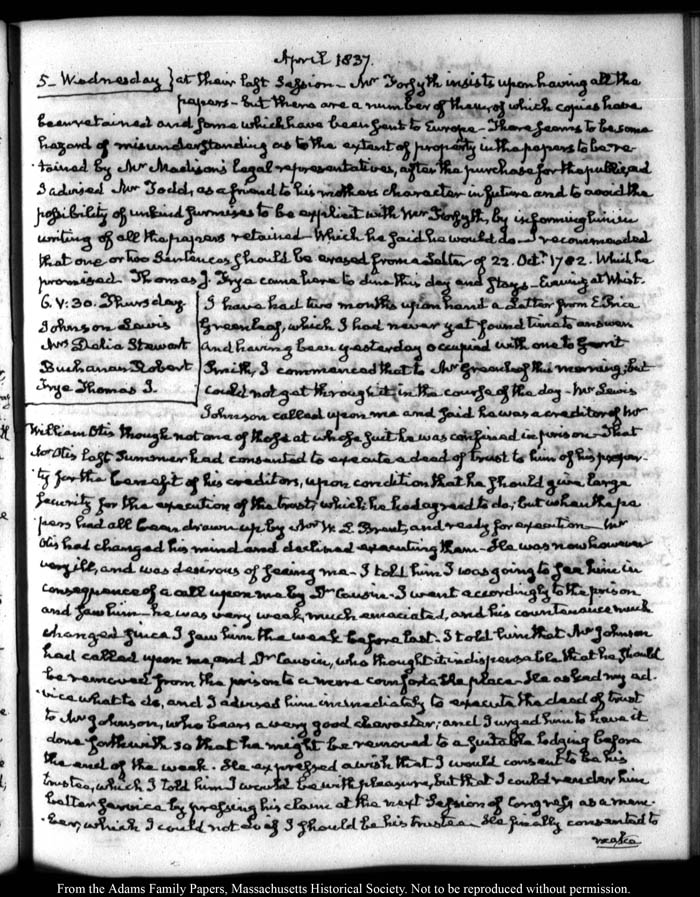 April 1837.
5- Wednesday } at their last Session- Mr Forsyth insists upon having all the
papers- but there are a number of them, of which copies have
been retained and some which have been sent to Europe- There seems to be some
hazard of misunderstanding as to the extent of property in the papers to be re-
tained by Mr Madison's legal representatives, after the purchase for the public, and
I advised Mr Todd, as a friend to his mother's character in future and to avoid the
possibility of unkind surmises to be explicit with Mr Forsyth, by informing him in
writing of all the papers retained- Which he said he would do- I recommended
that one or two Sentences should be erased from a Letter of 22. Octr. 1782. Which he
promised. Thomas J. Frye came here to dine this day and stays- Evening at Whist.
6. V: 30. Thursday
Johnson Lewis
Mrs Delia Stewart
Buchanan Robert
Frye Thomas J.
I have had two months upon hand a Letter from E. Price
Greenleaf, which I had never yet found time to answer
and having been yesterday occupied with one to Gerrit
Smith, I commenced that to Mr Greenleaf this morning; but
could not get through it in the course of the day- Mr Lewis
Johnson called upon me and said he was a creditor of Mr
William Otis though not one of those at whose suit he was confined in prison- That
Mr Otis last Summer had consented to execute a deed of trust to him of his proper-
ty for the benefit of his creditors, upon condition that he should give large
security for the execution of the trust; which he had agreed to do; but when the pa-
pers had all been drawn up by Mr W. L. Brent, and ready for execution- Mr
Otis had changed his mind and declined executing them- He was now however
very ill, and was desirous of seeing me- I told him I was going to see him in
consequence of a call upon me by Dr Causin- I went accordingly to the prison
and saw him- he was very weak, much emaciated, and his countenance much
changed since I saw him the week before last. I told him that Mr Johnson
had called upon me, and Dr Causin, who thought it indispensable that he should
be removed from the prison to a more comfortable place- He asked my ad-
vice what to do, and I advised him immediately to execute the deed of trust
to Mr Johnson, who bears a very good character; and I urged him to have it
done forthwith so that he might be removed to a suitable lodging before
the end of the week. He expressed a wish that I would consent to be his
trustee, which I told him I would be with pleasure, but that I could render him
better service by pressing his claim at the next Session of Congress as a mem-
ber, which I could not do if I should be his trustee- He finally consented to
make
From the Adams Family Papers, Massachusetts Historical Society. Not to be reproduced without permission.